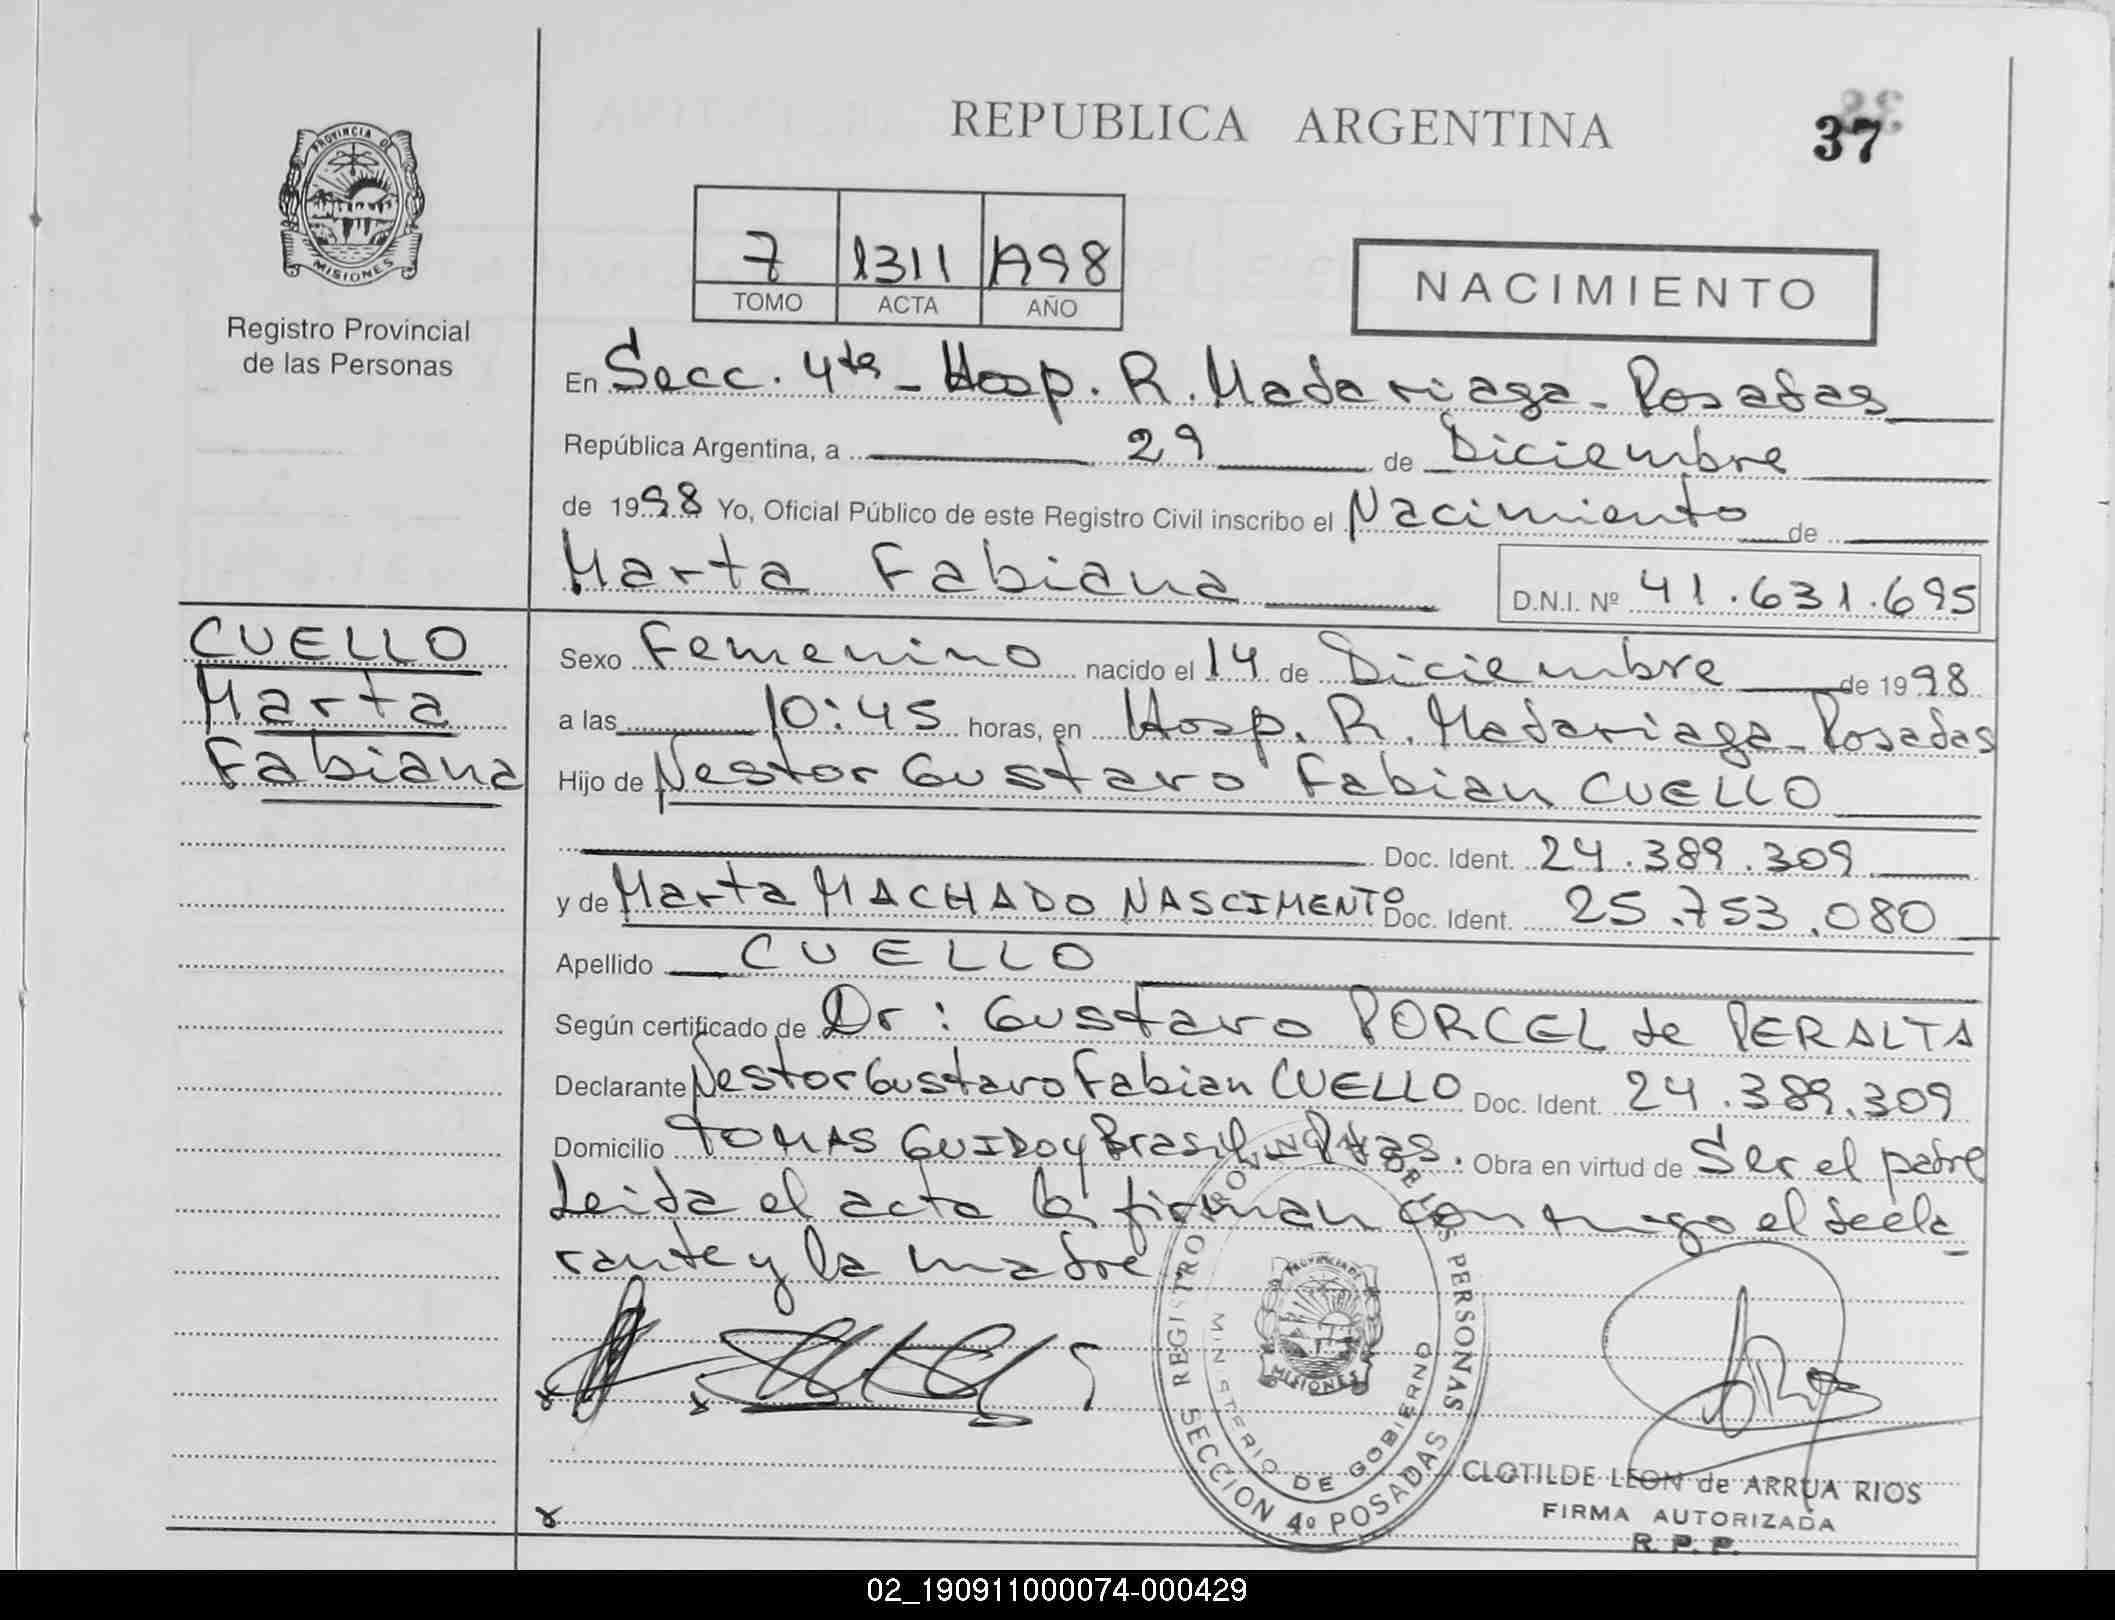 REPUBLICA ARGENTINA
37
PROVINCIA DE
MISIONES
Registro Provincial
de las Personas
7 1311 1998
TOMO ACTA AÑO
NACIMIENTO
En Secc. 4ta - Hosp. R. Madariaga - Posadas
República Argentina, a 29 de Diciembre
de 1998 Yo, Oficial Público de este Registro Civil inscribo el Nacimiento de
Marta Fabiana
D.N.I. Nº 41.631.695
CUELLO
Marta
Fabiana
Sexo Femenino nacido el 14 de Diciembre de 1998
a las 10:45 horas, en Hosp. R. Madariaga - Posadas
Hijo de Nestor Gustavo Fabian CUELLO
Doc. Ident. 24.389.309
y de Marta MACHADO NASCIMENTO Doc. Ident. 25.753.080
Apellido CUELLO
Según certificado de Dr: Gustavo PORCEL de PERALTA
Declarante Nestor Gustavo Fabian CUELLO Doc. Ident. 24.389.309
Domicilio TOMAS GUIDO y Brasil - Pdas. Obra en virtud de Ser el padre
Leida el acta la firman conmigo el decla
rante y la madre
REGISTRO PROV. DE LAS PERSONAS
MINISTERIO DE GOBIERNO
PROVINCIA DE
MISIONES
SECCION 4º POSADAS
CLOTILDE LEON de ARRUA RIOS
FIRMA AUTORIZADA
R. P. P.
02_190911000074-000429